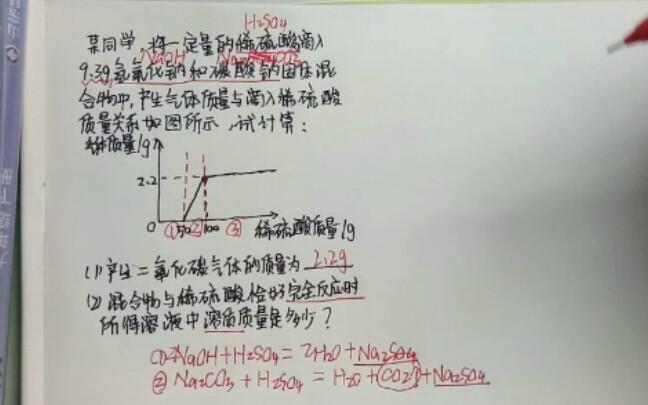 H₂SO₄
某同学,将一定量的稀硫酸滴入
NaOH
9.3g氢氧化钠和碳酸钠固体混
合物中,产生气体质量与滴入稀硫酸
质量关系如图所示,试计算:
气体质量/g
2.2
0 ① 50 ② 100 ③ 稀硫酸质量/g
(1)产生二氧化碳气体的质量为 2.2g
(2)混合物与稀硫酸恰好完全反应时
所得溶液中溶质质量是多少?
①2NaOH+H₂SO₄=2H₂O+Na₂SO₄
②Na₂CO₃+H₂SO₄=H₂O+CO₂↑+Na₂SO₄